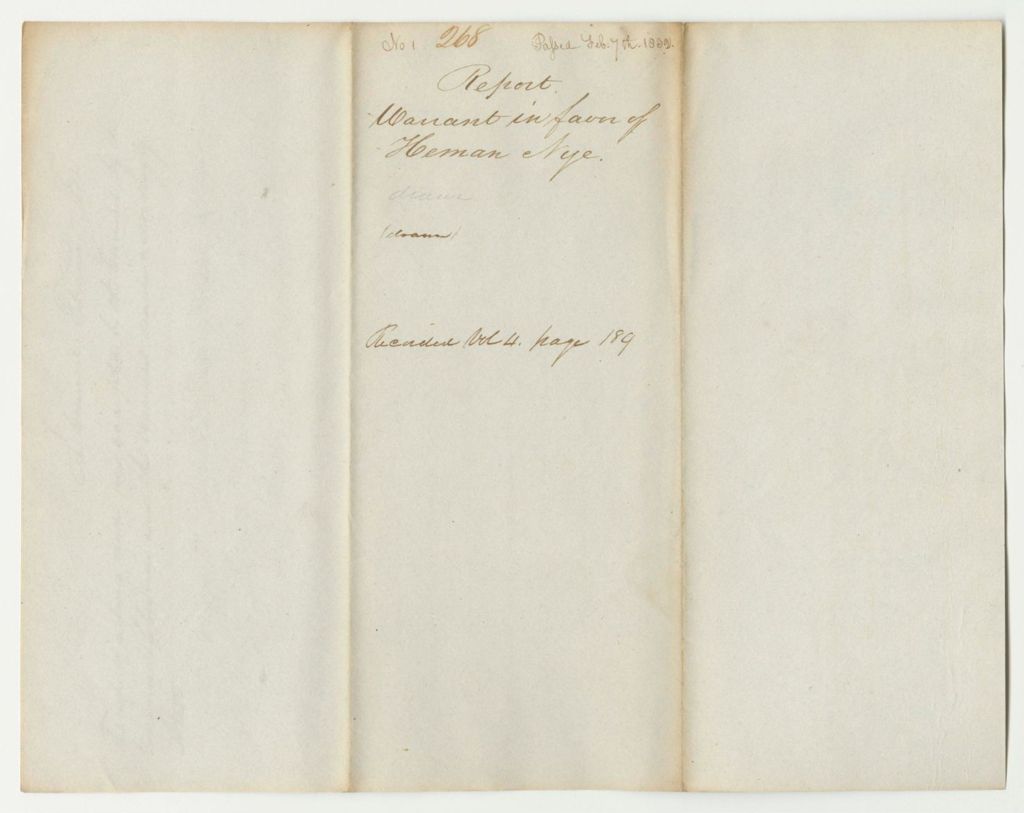 No 1 268 Passed Feb. 7th. 1832.
Report.
Warrant in favor of
Heman Nye.
drawn
(drawn)
Recorded Vol 4. page 189